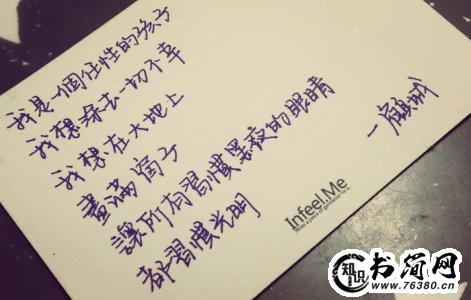 我是一個任性的孩子
我想涂去一切不幸
我想在大地上
畫滿窗子
讓所有習慣黑夜的眼睛
都習慣光明
一顧城
Infeel.Me
知识 书简网
www.76380.cn